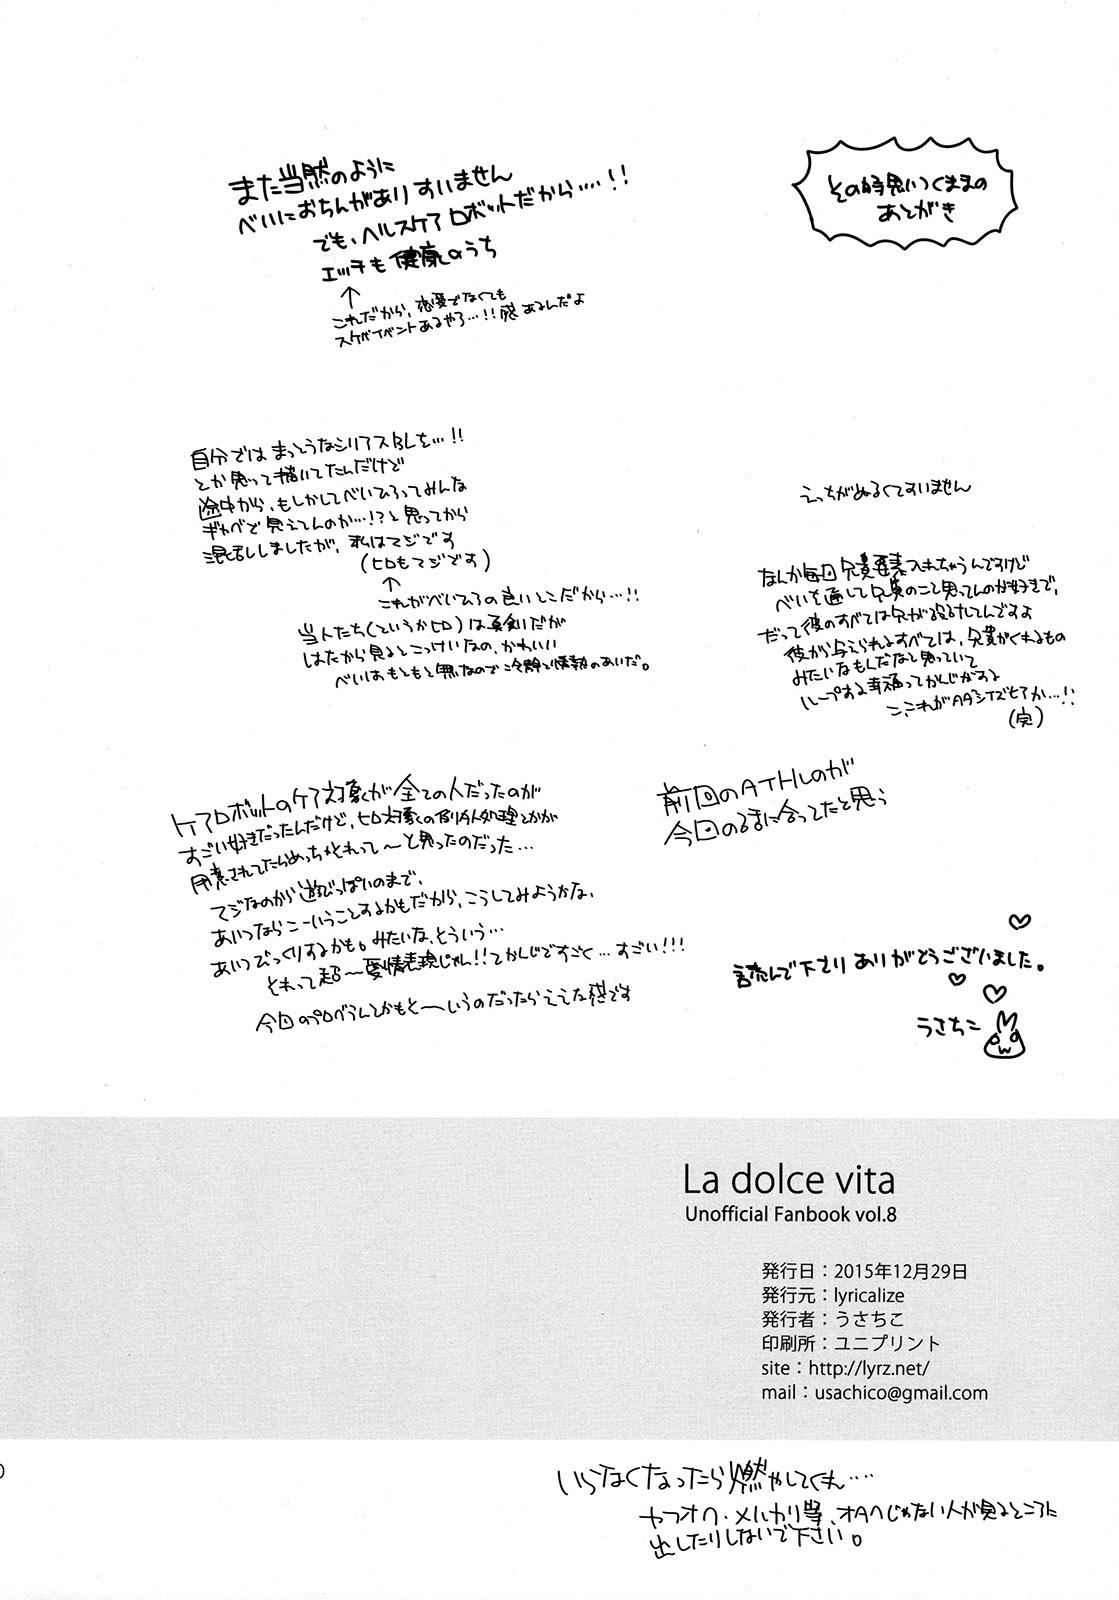 その時思いつくままの
あとがき
また当然のように
べいにおちんがありすいません
でも、ヘルスケアロボットだから…!!
エッチも健康のうち
↑
これだから、恋愛でなくても
スケベイベントあるやろ…!!感あるんだよ
えっちがぬるくてすいません
自分ではまっとうなシリアスBLを…!!
とか思って描いてたんだけど
途中から、もしかしてべいひろってみんな
ギャグで見えてんのか…!?と思ってから
混乱しましたが、私はマジです
(ヒロもマジです)
↑
これがべいひろの良いとこだから…!!
当人たち(というかヒロ)は真剣だが
はたから見るとこっけいなの、かわいい
べいはもともと無なので冷静と情熱のあいだ。
なんか毎回兄貴要素入れちゃうんですけど
べいを通して兄貴のこと思ってんのが好きで、
だって彼のすべては兄が設計してんですよ
彼から与えられるすべては、兄貴がくれるもの
みたいなもんだなと思っていて
ループする幸福ってかんじがする
こ、これがAAシTズヒアか…!!
(完)
ケアロボットのケア対象が全ての人だったのが
すごい好きだったんだけど、ヒロ対象の
処理とかが
用意されてたらめっちゃそれって〜と思ったのだった…
マジなのから遊びっぽいのまで、
あいつならこーいうことするかもだから、こうしてみようかな、
あいつびっくりするかも。みたいな、そういう…
それって超〜愛情表現じゃん!!てかんじですごく…すごい!!!
今回のプログラムとかもそ〜いうのだったらええな的な感です
前回のATHLのが
今回のるまに合ってたと思う
読んで下さりありがとうございました。
うさちこ
La dolce vita
Unofficial Fanbook vol.8
発行日：2015年12月29日
発行元：lyricalize
発行者：うさちこ
印刷所：ユニプリント
site：http://lyrz.net/
mail：usachico@gmail.com
いらなくなったら燃やしてくれ…
ヤフオク・メルカリ等、オタクじゃない人が見るところに
出したりしないで下さい。